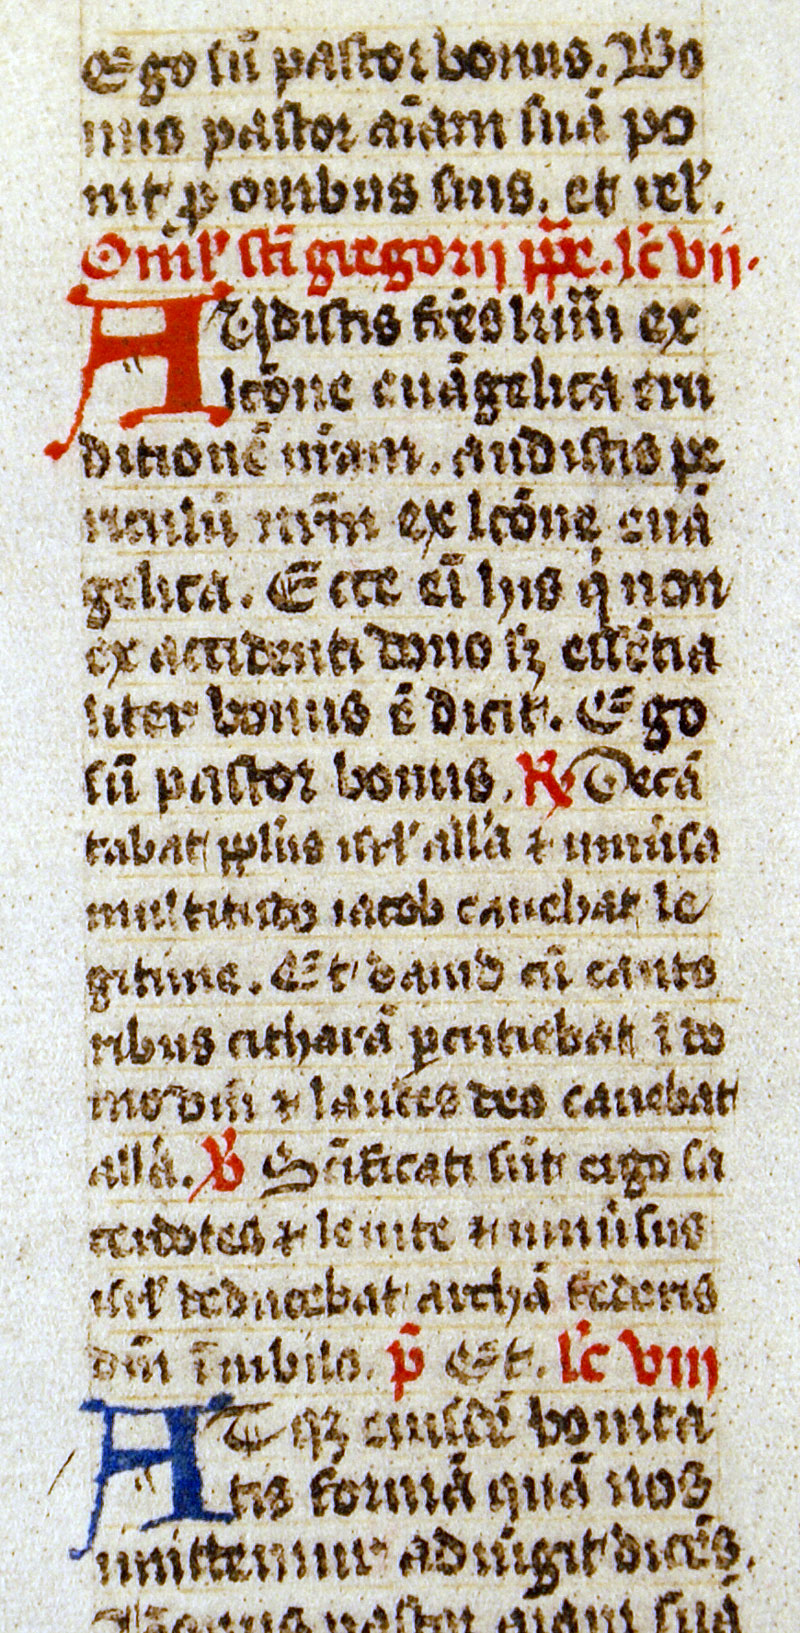 Ego sū pastor bonus. Bo
nus pastor aīam suā po
nit ꝓ ouibus suis. et rel̕.
Omīl̕ sc̄i gregorij p̄pe. lc̄ vij.
AUdistis fr̄es kmī ex
lcōne euāgelica eru
ditionē nr̄am. audistis pe
riculū nrm̄ ex lcōne euā
gelica. Ecce ei̅ hijs q̇ non
ex accidenti dono sꝫ essētia
liter bonus ē dicit. Ego
sū pastor bonus. ℟ Decā
tabat pp̄lus isrl̕ all̕a ⁊ uniūsa
multitudo iacob canebat le
gitime. Et dauid cū canto
ribus citharā ꝑcutiebat ī do
mo dn̄i ⁊ laudes deo canebat
all̕a. ℣ Scīficati sūt ergo sa
cerdotes ⁊ leuite ⁊ uniūsus
isrl̕ deducebat archā federis
dn̄i ī iubilo. p̄ Et. lc̄ viij
ATqꝫ eiusdē bonita
tis formā quā nos
imittemur adiūgit dicēs.
Bonus pastor aīam suā